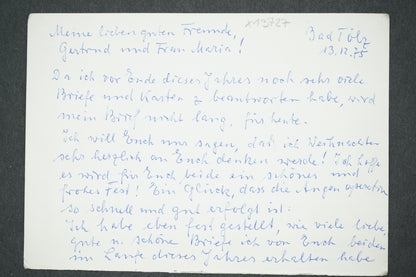 x13727
Meine lieben guten Freunde,
Gertrud und Frau Maria!
Bad Tölz
13.12.75
Da ich vor Ende dieses Jahres noch sehr viele
Briefe und Karten z beantworten habe, wird
mein Brief nicht lang, für heute.
Ich will Euch nur sagen, daß ich Weihnachten
sehr herzlich an Euch denken werde! Ich hoffe
es wird für Euch beide ein schönes und
frohes Fest! Ein Glück, dass die Augenoperation
so schnell und gut erfolgt ist.
Ich habe eben festgestellt, wie viele liebe,
gute u. schöne Briefe ich von Euch beiden
im Laufe dieses Jahres erhalten habe